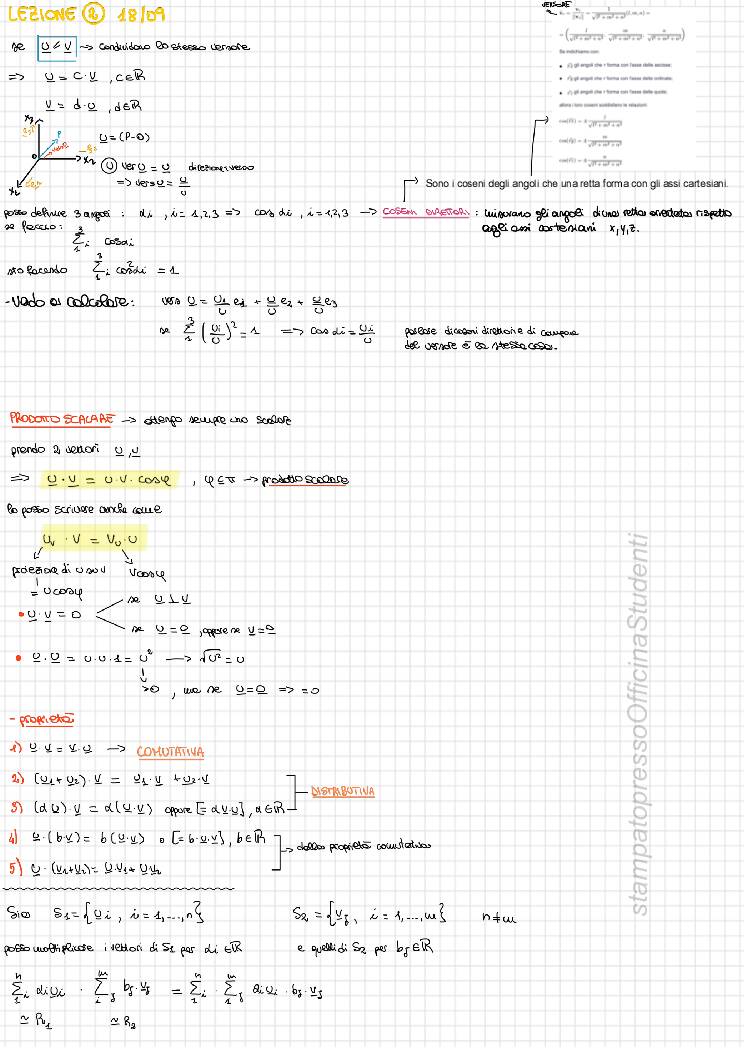 LEZIONE ② 18/09
VERSORE
se u // v → condividono lo stesso versore
=> u = c · v , c∈ℝ
v = d · u , d∈ℝ
Se indichiamo con:
gli angoli che r forma con l'asse delle ascisse;
gli angoli che r forma con l'asse delle ordinate;
gli angoli che r forma con l'asse delle quote;
allora i loro coseni soddisfano le relazioni:
x3
u = (P-O)
P
O
x2
x1
vers u = u direzione, verso
=> vers u = u/u
Sono i coseni degli angoli che una retta forma con gli assi cartesiani.
posso definire 3 angoli : αi , i=1,2,3 => cos αi , i=1,2,3 → COSENI DIRETTORI : misurano gli angoli di una retta orientata rispetto
agli assi cartesiani x,y,z.
se faccio: Σ³₁i cosαi
sto facendo Σ³₁i cos²αi = 1
- Vado a calcolare: vers u = u1/u e1 + u/u e2 + u/u e3
se Σ³₁ (ui/u)² = 1 => cos αi = ui/u
parlare di coseni direttori e di componenti
del versore è la stessa cosa.
PRODOTTO SCALARE → ottengo sempre uno scalare
prendo 2 vettori u, v
=> u · v = u·v· cosφ , φ∈π → prodotto scalare
lo posso scrivere anche come
uv · v = vu · u
proiezione di u su v
vcosφ
= ucosφ
• u · v = 0
se u ⊥ v
se u = 0 , oppure se v = 0
• u · u = u·u·1 = u² → √u² = u
>0 , ma se u = 0 => =0
- proprietà
1) u · v = v · u → COMUTATIVA
2) (u1+u2) · v = u1·v + u2·v
DISTRIBUTIVA
3) (αu) · v = α(u·v) oppure [=αv·u], α∈ℝ
4) u · (bv) = b(u·v) o [= b·u·v], b∈ℝ
→ dalla proprietà comutativa
5) u · (v1+v2) = u·v1 + u·v2
Sia S1 = {ui , i=1,...,n} S2 = {vj , i=1,...,m} n≠m
posso moltiplicare i vettori di S1 per αi ∈ℝ e quelli di S2 per bj∈ℝ
Σⁿ₁i αiui · Σᵐ₁j bj·vj = Σⁿ₁i · Σᵐ₁j αiui · bj·vj
≃ R1 ≃ R2
stampatopressoOfficinaStudenti